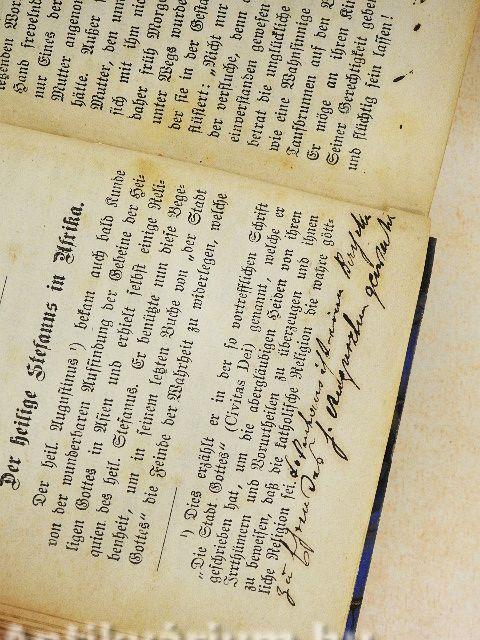 Der heilige Stefanus in Afrika.
Der heil. Augustinus ¹) bekam auch bald Kunde
von der wunderbaren Auffindung der Gebeine des Hei-
ligen Gottes in Asien und erhielt selbst einige Reli-
quien des heil. Stefanus. Er benützte nun diese Bege-
benheit, um in seinem letzten Buche von „der Stadt
Gottes“ die Feinde der Wahrheit zu widerlegen, welche
¹) Dies erzählt er in der so vortrefflichen Schrift
„Die Stadt Gottes“ (Civitas Dei) genannt, welche er
geschrieben hat, um die abergläubigen Heiden von ihren
Irrthümern und Vorurtheilen zu überzeugen und ihnen
zu beweisen, daß die katholische Religion die wahre gött-
liche Religion sei.
Hand frevelnd
nur Eines der
Mutter angenom
hätte. Außer
Mutter, den
sich mit ihm
daher früh Morge
unter Wegs wurde
der sie in der Gestal
flüstert: „Nicht nur
der verfluche, denn
einverstanden gewesen
betrat die unglückliche
wie eine Wahnsinnige
Taufbrunnen auf den
Er möge an ihren Kin
Seiner Gerechtigkeit geben
und flüchtig sein lassen!
Antikvarium.hu